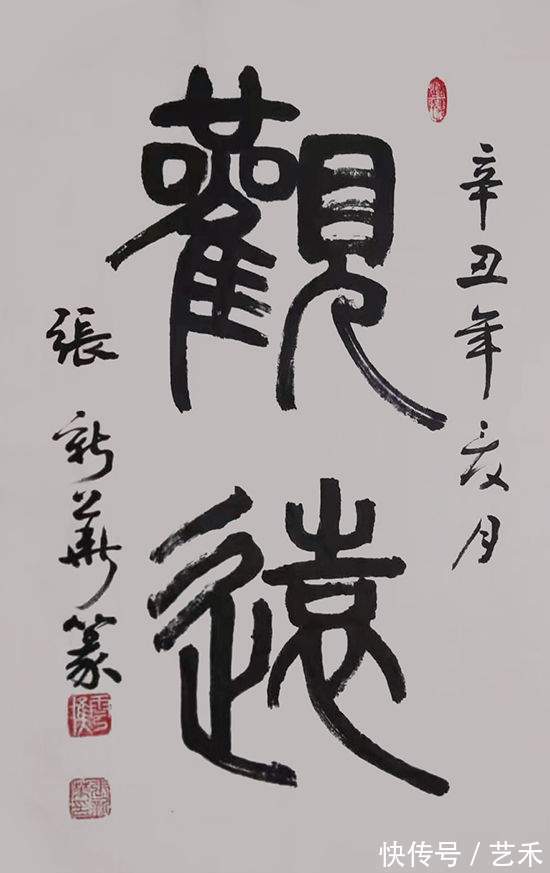 辛丑年夏月
觀遠
張新華篆
快传号 / 艺禾